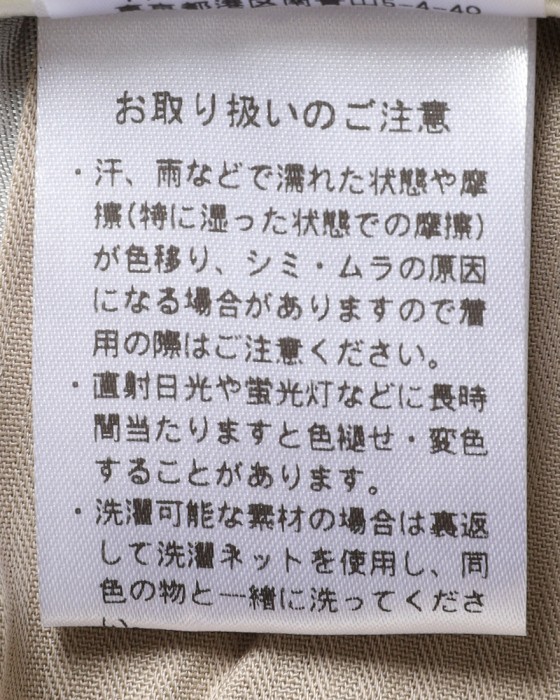 東京都港区南青山5-4-40
お取り扱いのご注意
・汗、雨などで濡れた状態や摩
擦(特に湿った状態での摩擦)
が色移り、シミ・ムラの原因
になる場合がありますので着
用の際はご注意ください。
・直射日光や蛍光灯などに長時
間当たりますと色褪せ・変色
することがあります。
・洗濯可能な素材の場合は裏返
して洗濯ネットを使用し、同
色の物と一緒に洗ってくださ
い。